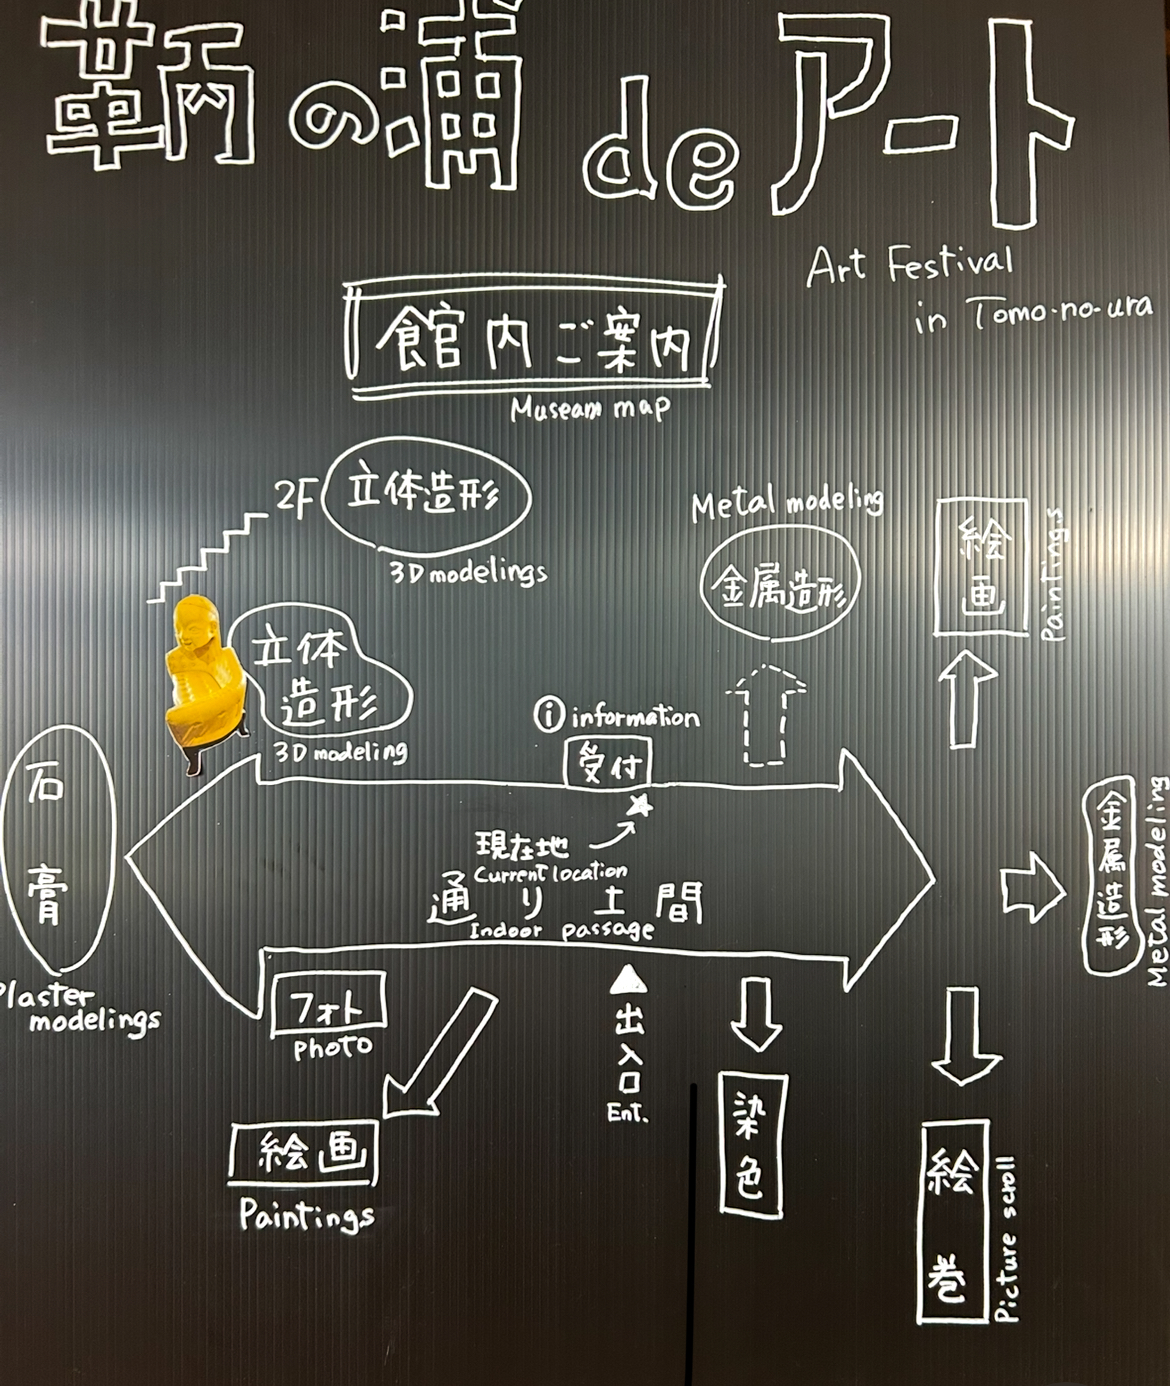 鞆の浦 de アート
Art Festival
in Tomo-no-ura
館内ご案内
Museam map
2F 立体造形
3D modelings
立体
造形
3D modeling
Metal modeling
金属造形
絵画
Paintings
ⓘ information
受付
石膏
Plaster
modelings
現在地
Current location
通り土間
Indoor passage
金属造形
Metal modeling
フォト
Photo
絵画
Paintings
出入口
Ent.
染色
絵巻
Picture scroll